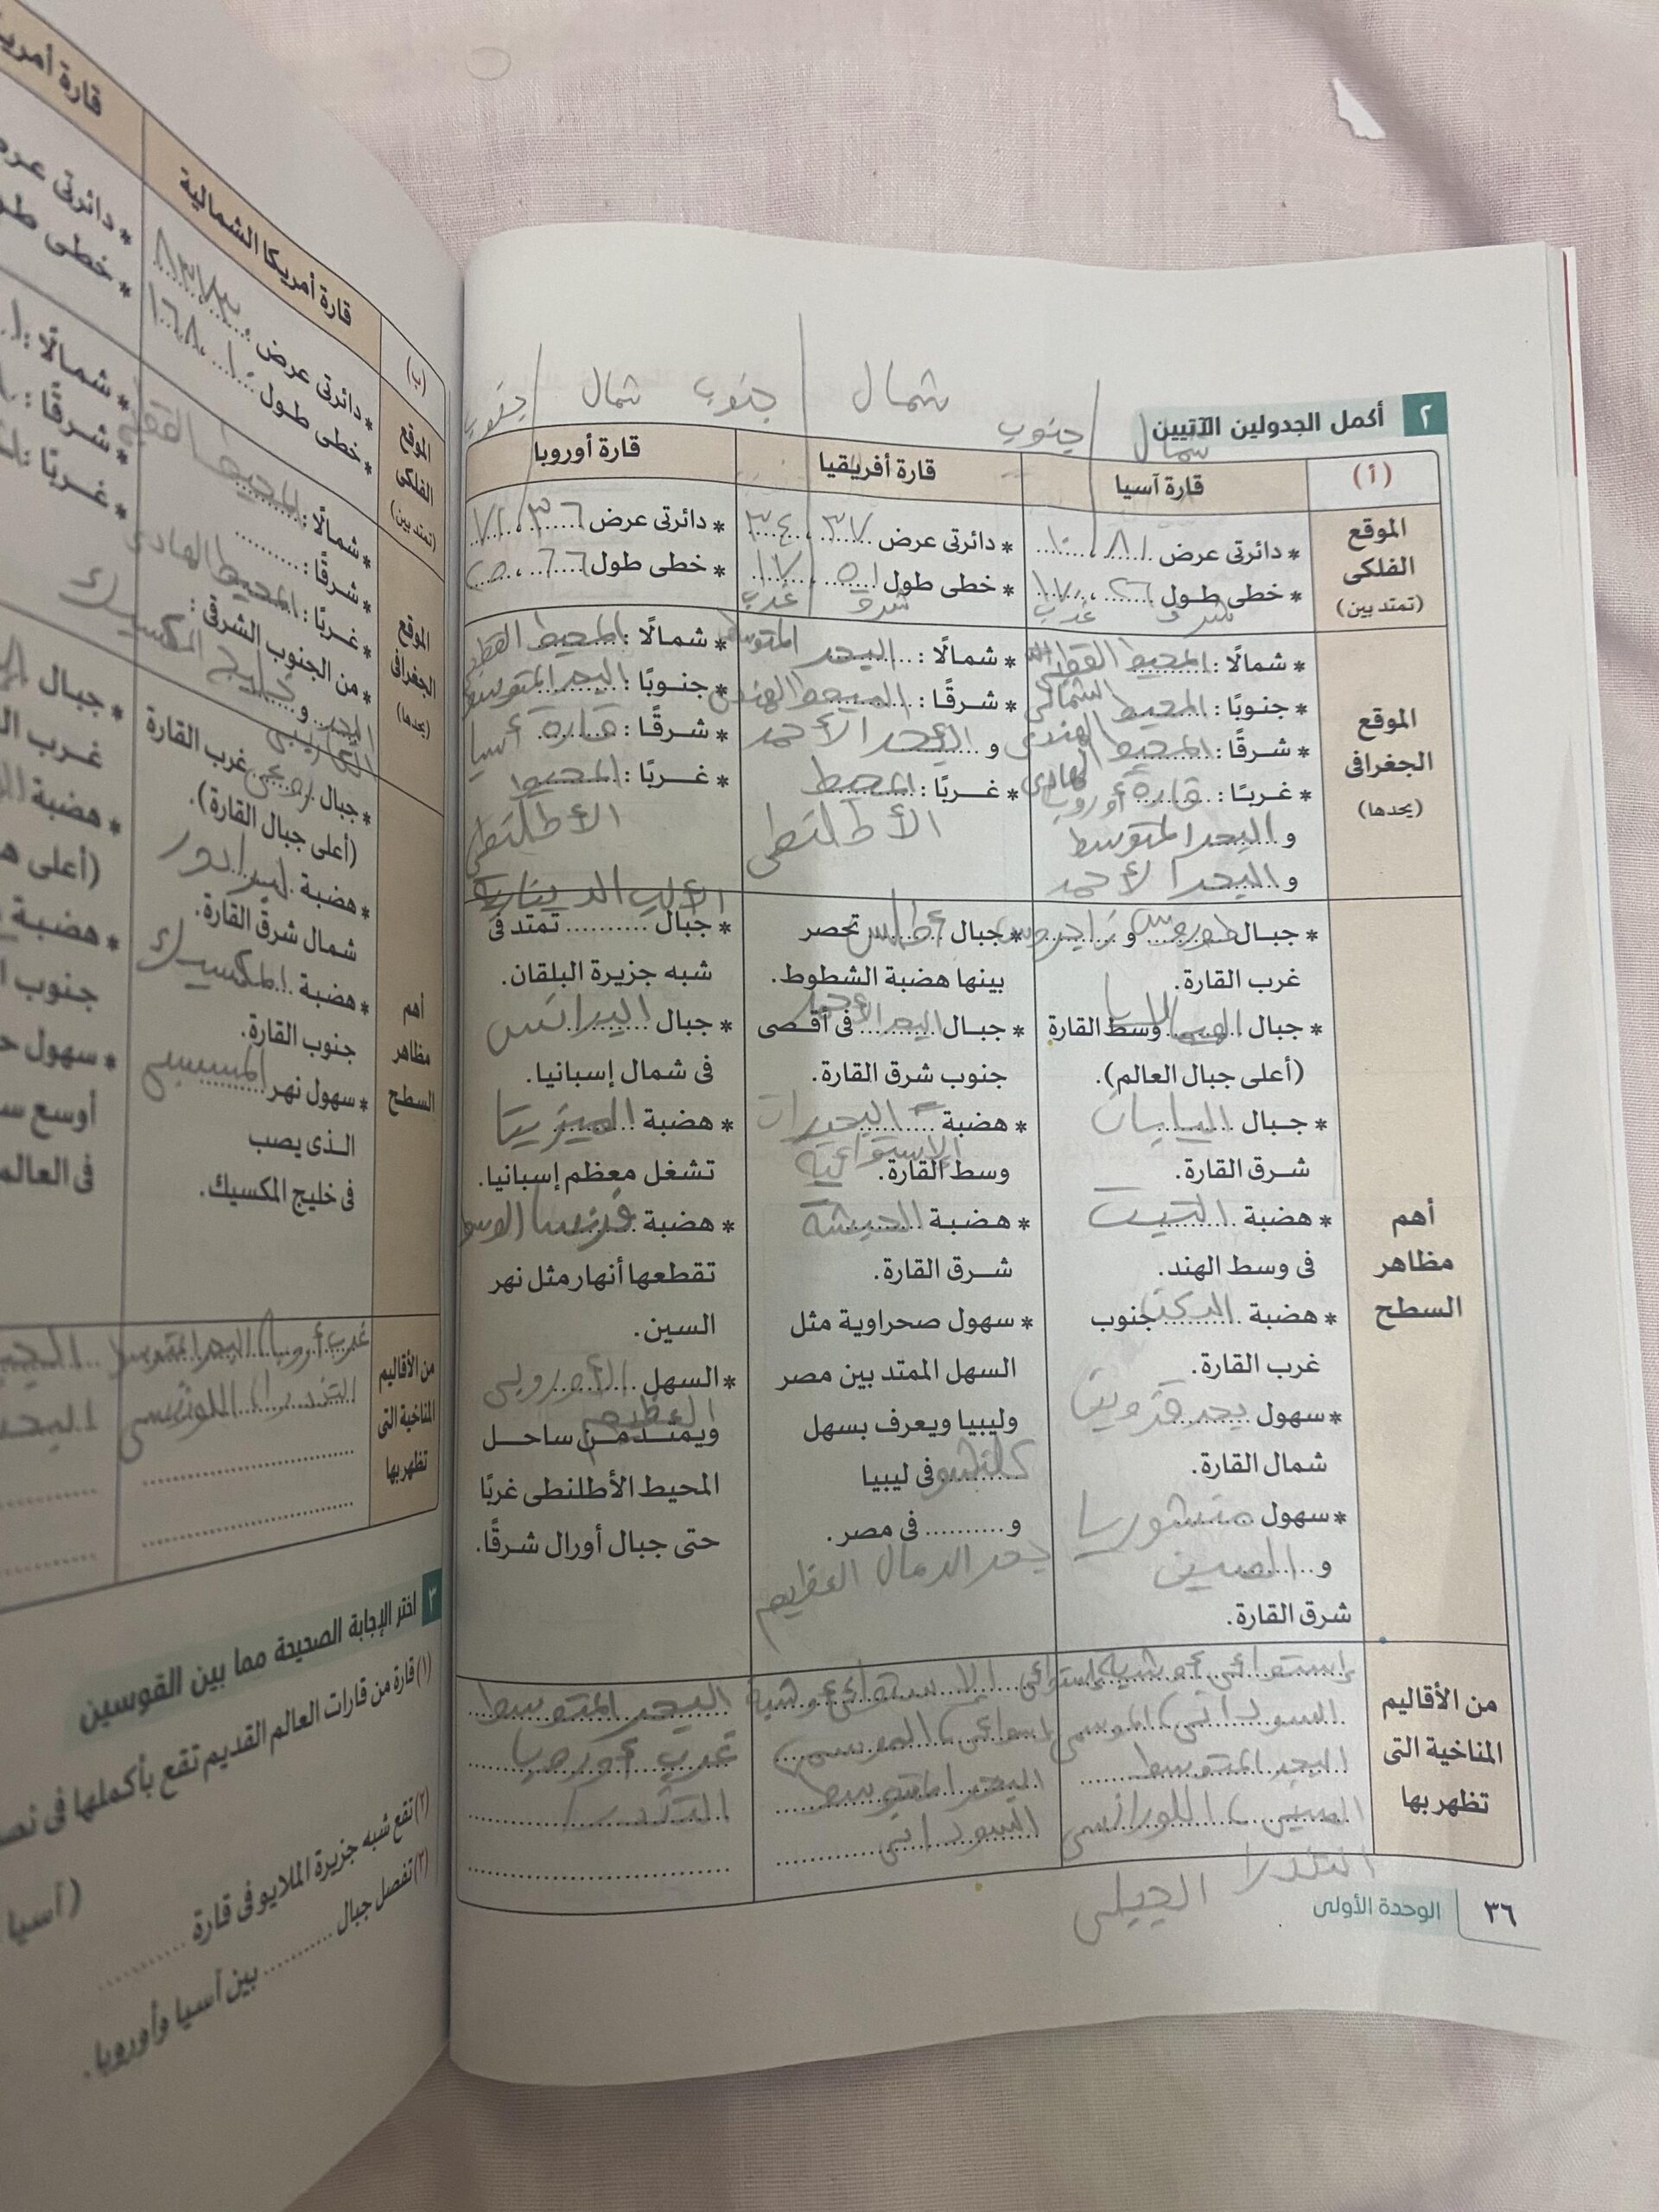 ٢ أكمل الجدولين الآتيين
شمال / جنوب
شمال / جنوب
شمال / جنوب
(أ)
قارة آسيا
قارة أفريقيا
قارة أوروبا
الموقع
الفلكى
(تمتد بين)
* دائرتى عرض ٨١ ، ١٠
* خطى طول ٢٦ ، ١٧٠
شرق غرب
* دائرتى عرض ٣٧ ، ٣٤
* خطى طول ٥١ ، ١٧
شرق غرب
* دائرتى عرض ٣٦ ، ٧١
* خطى طول ٦٦ ،
الموقع
الجغرافى
(يحدها)
* شمالًا : المحيط القطبى الشمالى
* جنوبًا : المحيط الهندى
* شرقًا : المحيط الهادى
* غربًا : قارة أوروبا
و البحر المتوسط
و البحر الأحمر
* شمالًا : البحر المتوسط
* شرقًا : المحيط الهندى
و البحر الأحمر
* غربًا : المحيط
الأطلنطى
* شمالًا : المحيط القطبى
* جنوبًا : البحر المتوسط
* شرقًا : قارة أسيا
* غربًا : المحيط
الأطلنطى
أهم
مظاهر
السطح
* جبال طوروس و زاجروس
غرب القارة.
* جبال الهيمالايا وسط القارة
(أعلى جبال العالم).
* جبال اليابان
شرق القارة.
* هضبة التبت
فى وسط الهند.
* هضبة الدكن جنوب
غرب القارة.
* سهول بحر قزوين
شمال القارة.
* سهول منشوريا
و الصين
شرق القارة.
* جبال أطلس تحصر
بينها هضبة الشطوط.
* جبال البحر الأحمر فى أقصى
جنوب شرق القارة.
* هضبة البحيرات
الإستوائية
وسط القارة.
* هضبة الحبشة
شرق القارة.
* سهول صحراوية مثل
السهل الممتد بين مصر
وليبيا ويعرف بسهل
فى ليبيا
و.......... فى مصر.
بحر الرمال العظيم
الألب الدينارية
* جبال .......... تمتد فى
شبه جزيرة البلقان.
* جبال البرانس
فى شمال إسبانيا.
* هضبة الميزيتا
تشغل معظم إسبانيا.
* هضبة فرنسا الوسطى
تقطعها أنهار مثل نهر
السين.
* السهل الأوروبى
العظيم
ويمتد من ساحل
المحيط الأطلنطى غربًا
حتى جبال أورال شرقًا.
من الأقاليم
المناخية التى
تظهر بها
السودانى، الموسمى
البحر المتوسط
الصينى، اللورانسى
التندرا الجبلى
البحر المتوسط
السودانى
البحر المتوسط
غرب أوروبا
التندرا
٣٦ الوحدة الأولى
(ب)
قارة أمريكا الشمالية
الموقع
الفلكى
(تمتد بين)
* دائرتى عرض
* خطى طول ١٠ ، ١٦٨
الموقع
الجغرافى
(يحدها)
* شمالًا : المحيط
* شرقًا : ..........
* غربًا : المحيط الهادى
* من الجنوب الشرقى :
البحر و خليج المكسيك
الكاريبى
أهم
مظاهر
السطح
* جبال روكى غرب القارة
(أعلى جبال القارة).
* هضبة لبرادور
شمال شرق القارة.
* هضبة المكسيك
جنوب القارة.
* سهول نهر المسيسبى
الذى يصب
فى خليج المكسيك.
من الأقاليم
المناخية التى
تظهر بها
غرب أوروبا، البحر المتوسط
التندرا، اللورنسى
* دائرتى عرض
* خطى
* شمالًا :
* شرقًا :
* غربًا :
* جبال
غرب
* هضبة
(أعلى
* هضبة
جنوب
* سهول
أوسع
فى العالم
٣ اختر الإجابة الصحيحة مما بين القوسين
(١) قارة من قارات العالم القديم تقع بأكملها فى
(آسيا
(٢) تقع شبه جزيرة الملايو فى قارة ..........
(٣) تفصل جبال .......... بين آسيا وأوروبا.